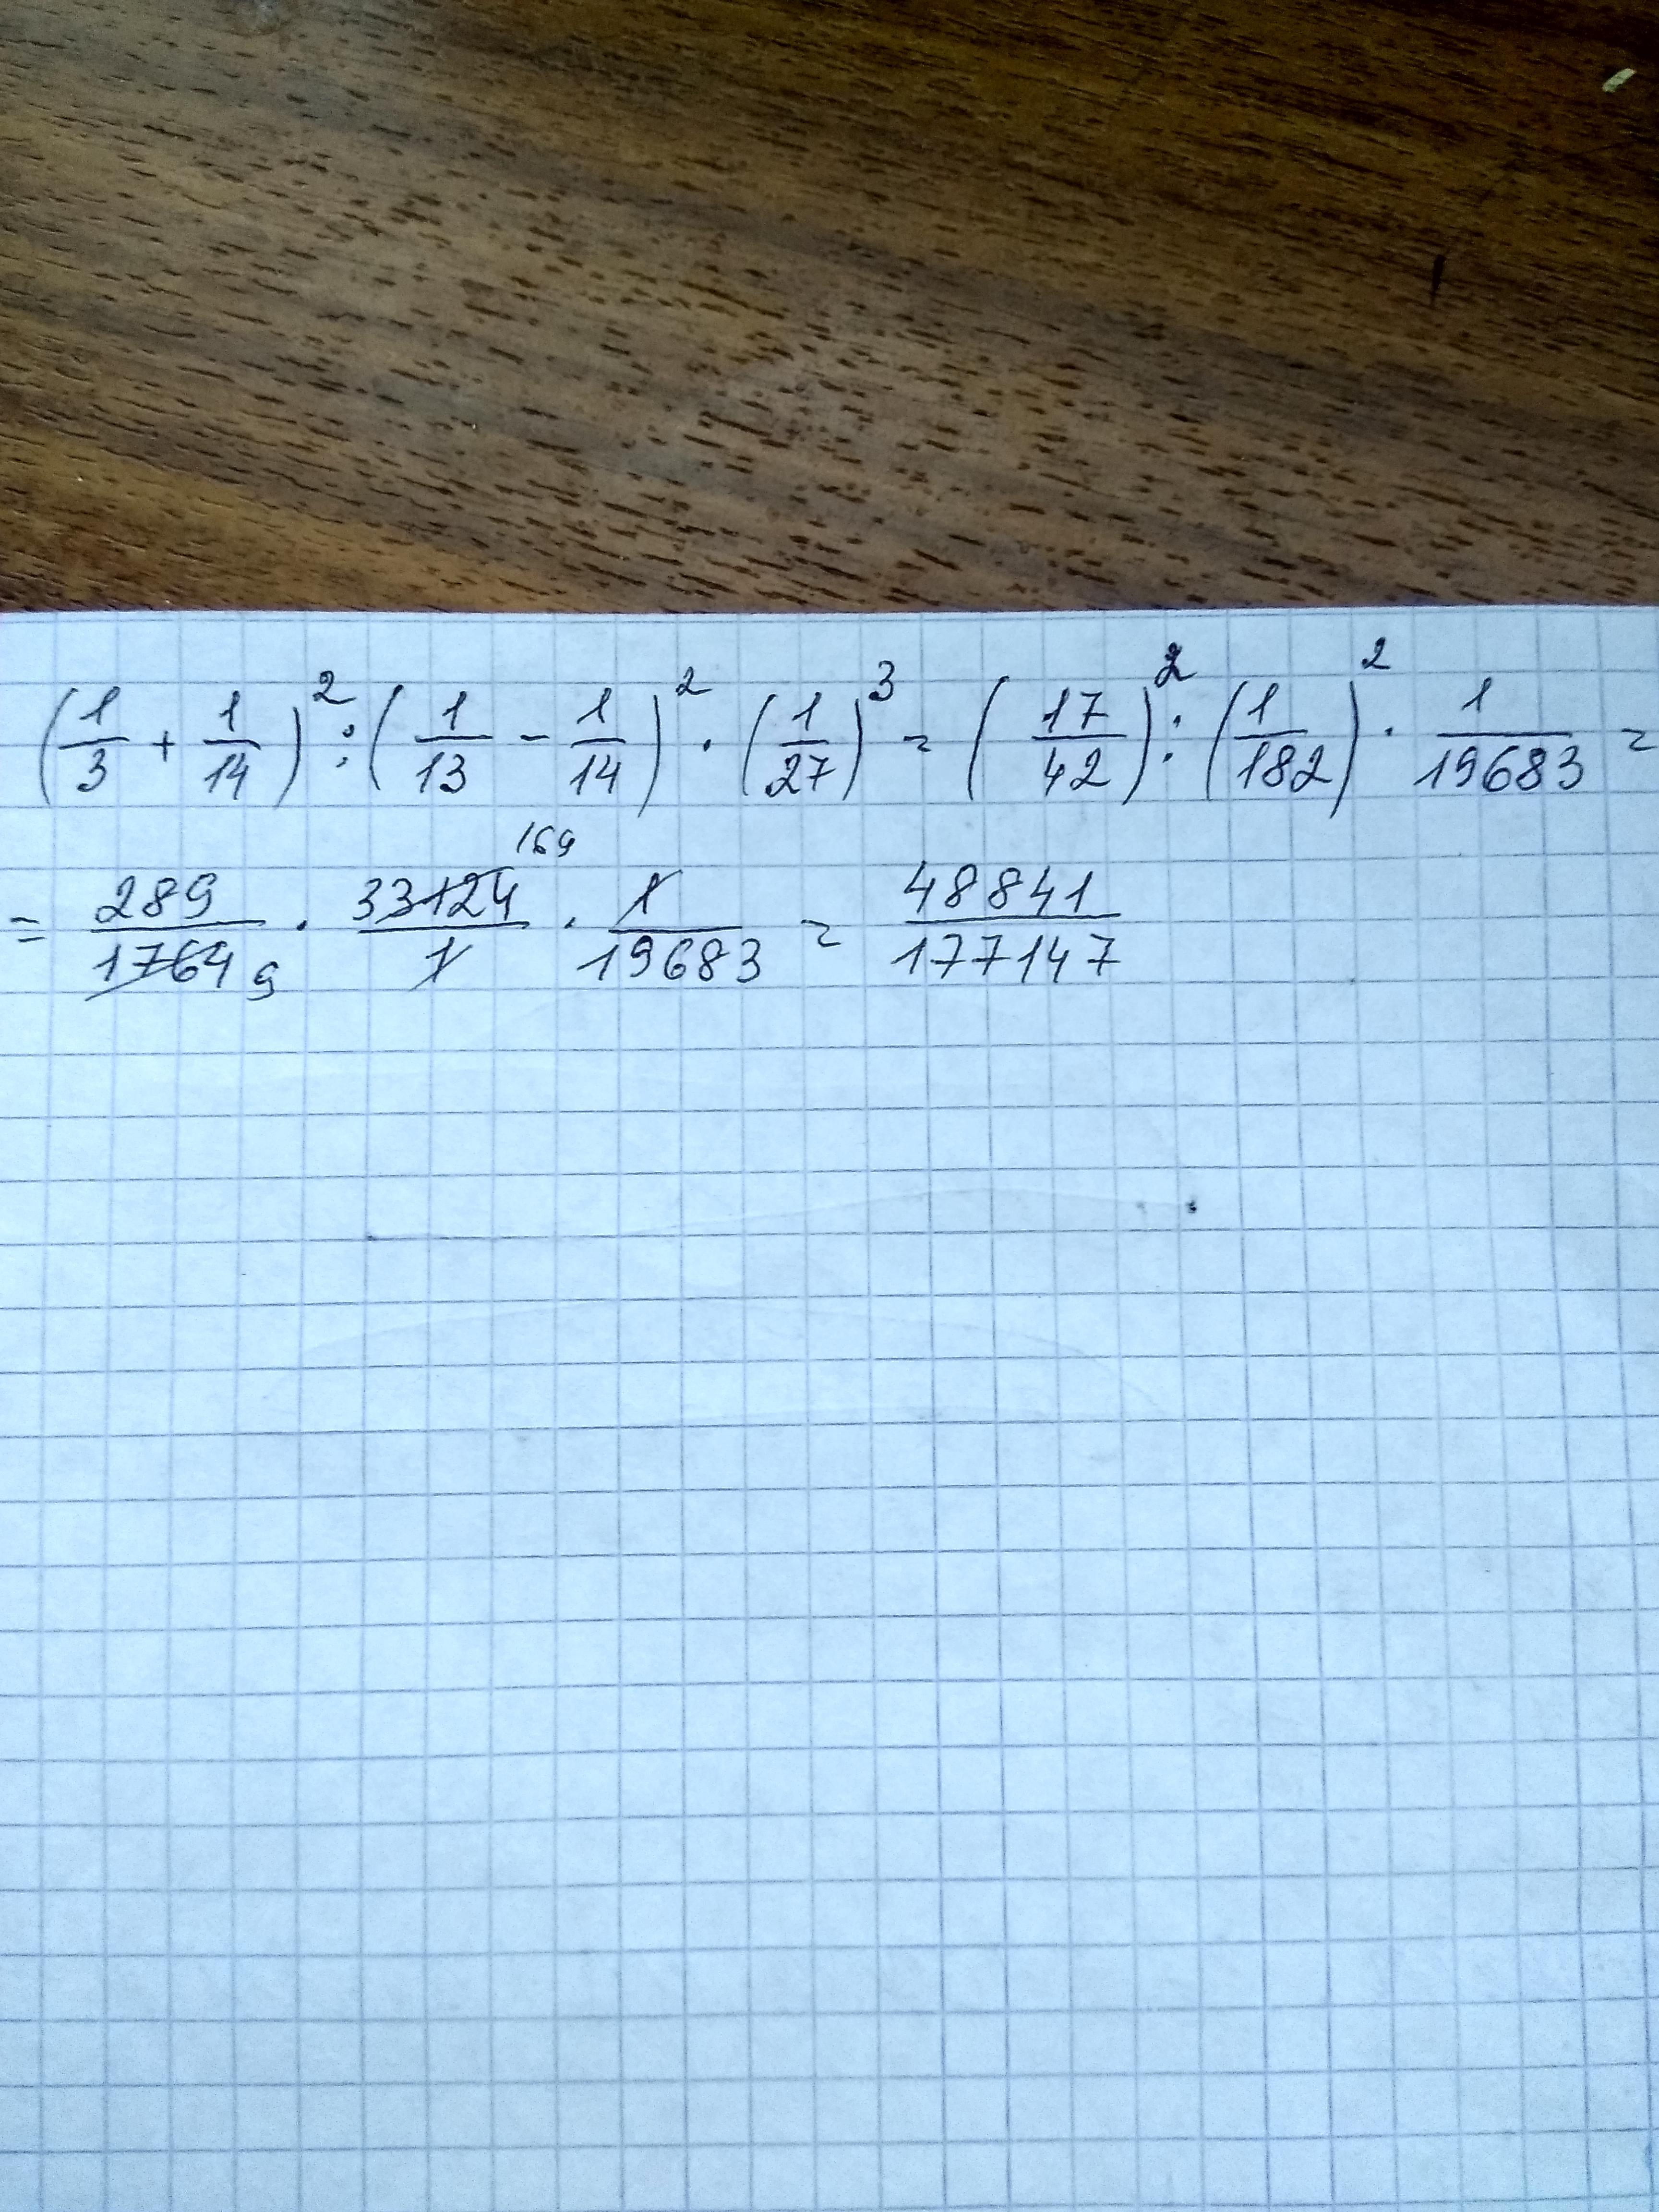 (1/3 + 1/14)² : (1/13 - 1/14)² · (1/27)³ = (17/42)² : (1/182)² · 1/19683 =
= 289/1764 9 · 33124 169/1 · 1/19683 = 48841/177147